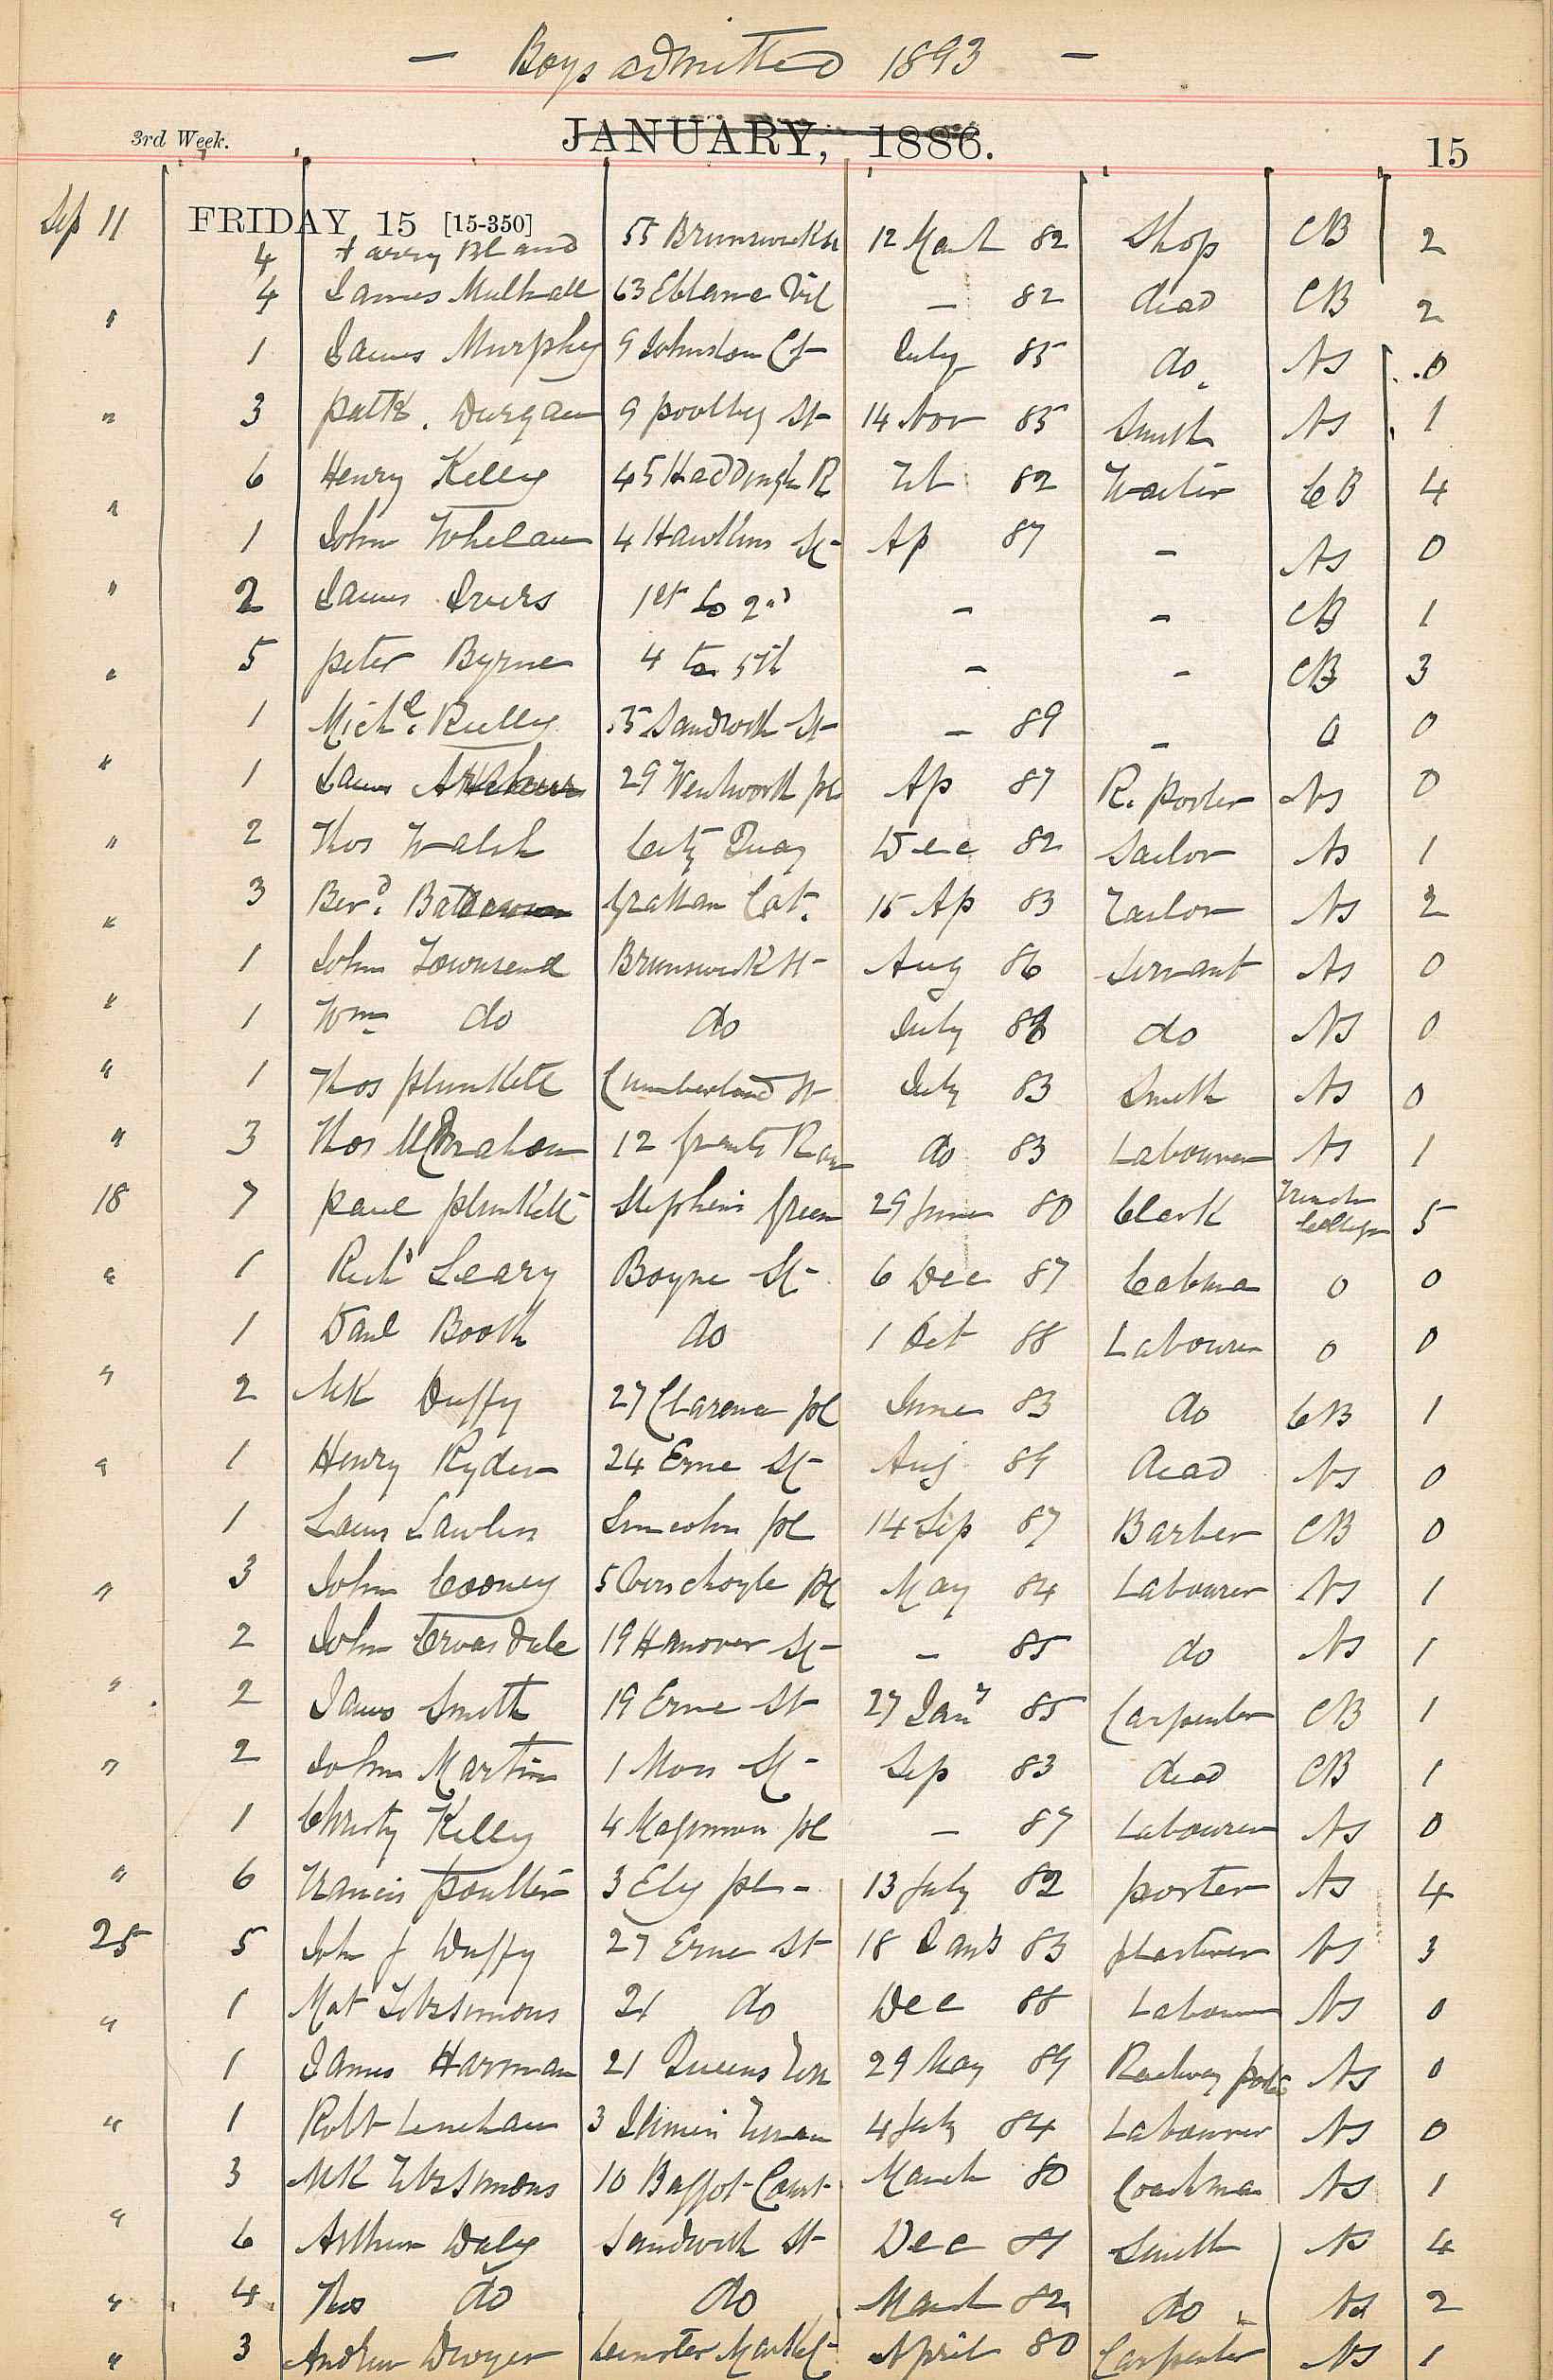 — Boys admitted 1893 —
3rd Week. JANUARY, 1886. 15
FRIDAY 15 [15-350]
Sep 11 4 Harry Bland 55 Brunswick St 12 March 82 Shop CB 2
4 James Mulhall 63 Eblana Vil — 82 dead CB 2
" 1 James Murphy 9 Johnston Ct July 85 do. NS 0
" 3 Patk. Durgan 9 Poolbeg St 14 Nov 85 Smith NS 1
6 Henry Kelly 45 Haddingtn R Feb 82 Waiter CB 4
" 1 John Whelan 4 Hawkins St Ap 87 - NS 0
" 2 James Ivers 1st to 2nd - - CB 1
" 5 Peter Byrne 4 to 5th - - CB 3
1 Michl. Reilly 35 Sandwith St — 89 - 0 0
" 1 James 29 Wentworth pl Ap 87 R. Porter NS 0
" 2 Thos Walsh City Quay Dec 82 Sailor NS 1
" 3 Berd. Grattan Cot. 15 Ap 83 Tailor NS 2
1 John Townsend Brunswick St Aug 86 Servant NS 0
" 1 Wm do do July 88 do NS 0
" 1 Thos Plunkett Cumberland St July 83 Smith NS 0
" 3 Thos McMahon 12 Grants Row do 83 Labourer NS 1
18 7 Paul Plunkett Stephens Green 29 June 80 Clerk French College 5
" 1 Richd Leary Boyne St 6 Dec 87 Cabman 0 0
1 Danl Booth do 1 Oct 88 Labourer 0 0
" 2 MK Duffy 27 Clarence pl June 83 do CB 1
" 1 Henry Ryder 24 Erne St Aug 89 dead NS 0
1 James Lawler Lincoln pl 14 Sep 87 Barber CB 0
" 3 John Cooney 5 Verschoyle pl May 84 Labourer NS 1
2 John 19 Hanover St — 85 do NS 1
" 2 James Smith 19 Erne St 27 Jany 85 Carpenter CB 1
" 2 John Martin 1 Moss St Sep 83 dead CB 1
1 Christy Kelly 4 pl — 87 Labourer NS 0
" 6 Francis Poulter 3 Ely pl 13 July 82 porter NS 4
25 5 John J Duffy 27 Erne St 18 Jany 83 plasterer NS 3
" 1 Mat Fitzsimons 21 do Dec 88 Labourer NS 0
1 James Harman 21 Queens Terr 29 May 89 Railway porter NS 0
" 1 Robt Lenehan 3 4 July 84 Labourer NS 0
3 MK Fitzsimons 10 Baggot Court March 80 Coachman NS 1
" 6 Arthur Daly Sandwith St Dec 81 Smith NS 4
" 4 Thos do do March 82 do NS 2
" 3 Andrew Dwyer Leinster Market April 80 Carpenter NS 1